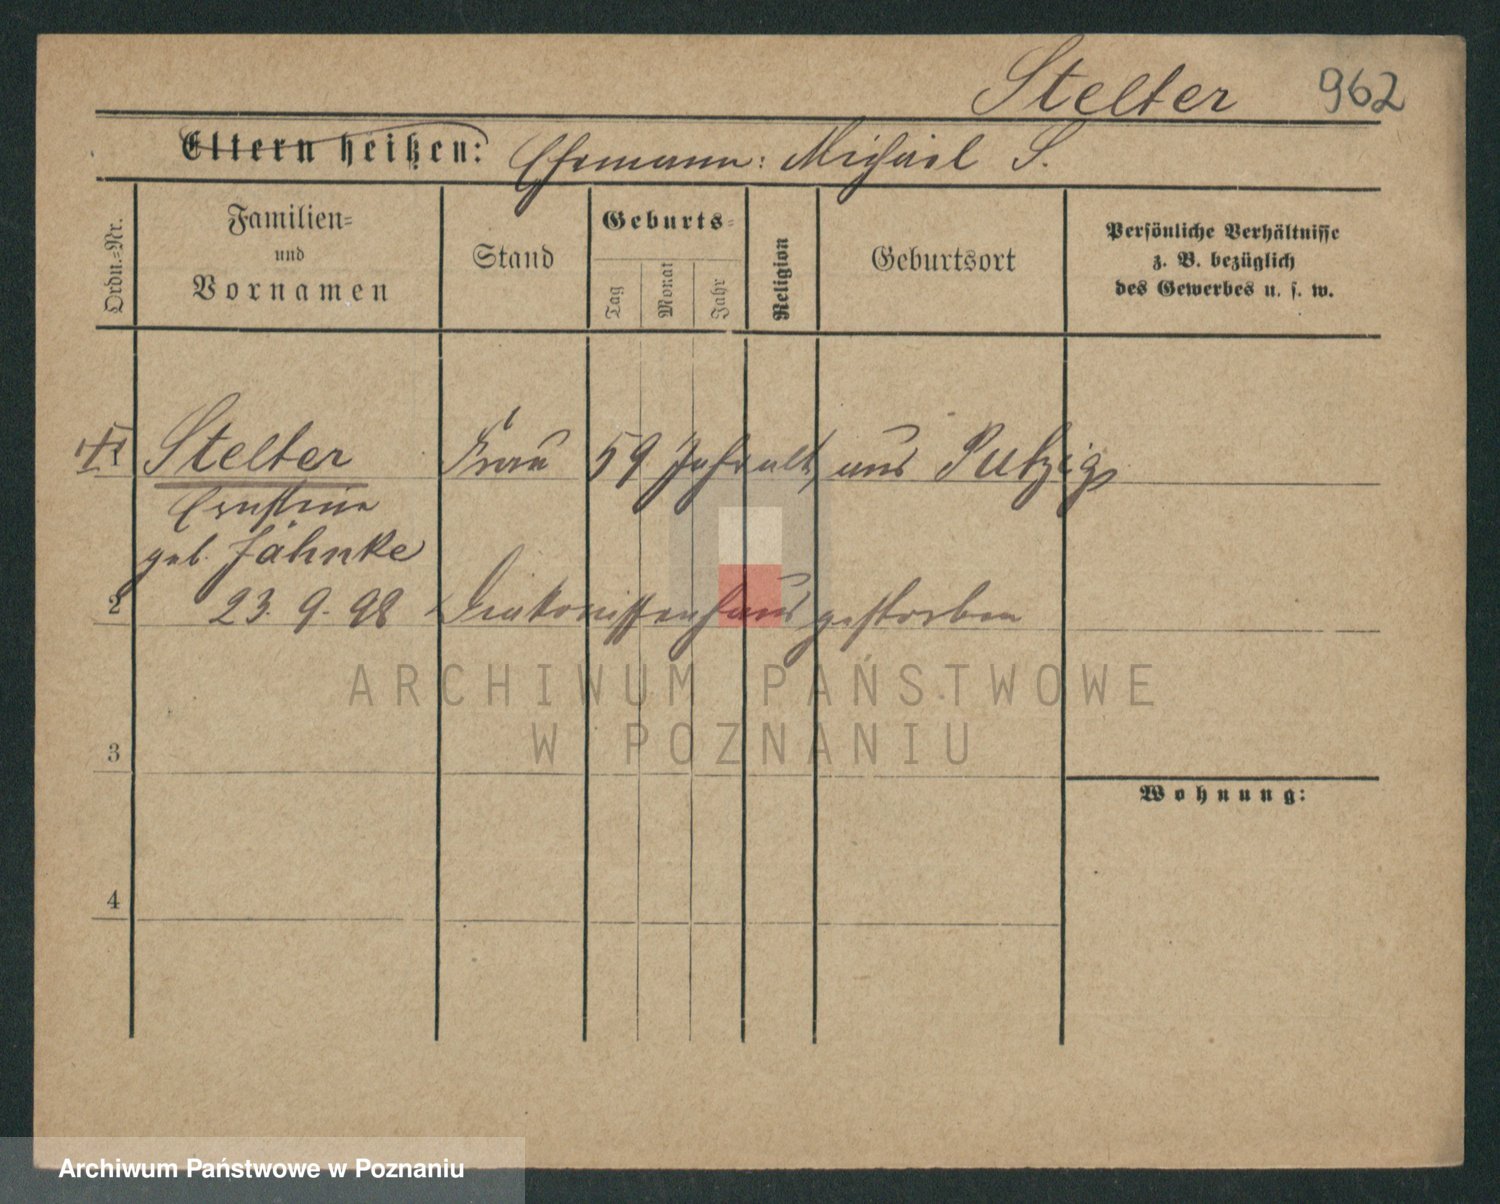 Stelter 962
Eltern heißen: Ehemann: Michael S.
Ordn.=Nr.
Familien=
und
Vornamen
Stand
Geburts=
Tag
Monat
Jahr
Religion
Geburtsort
Persönliche Verhältnisse
z. B. bezüglich
des Gewerbes u. s. w.
1 Stelter Frau 59 Jahr alt, aus Putzig
Ernstine
geb. Jähnke
2 23. 9. 98 Diakonissenhaus gestorben
3
4
Wohnung:
ARCHIWUM PAŃSTWOWE
W POZNANIU
Archiwum Państwowe w Poznaniu